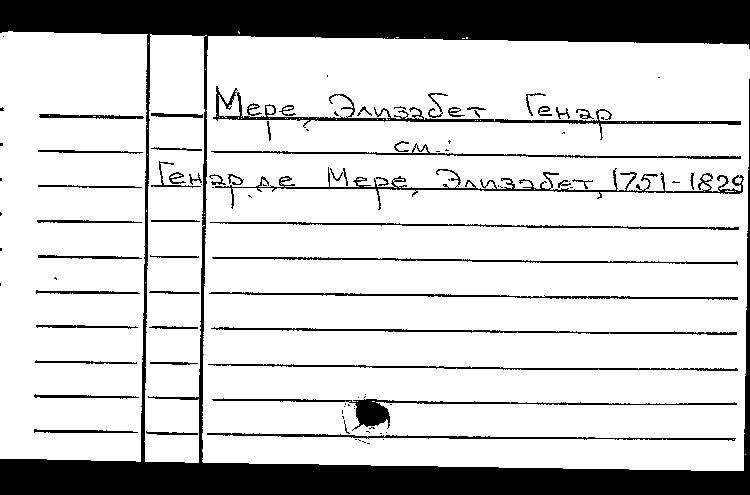 Мере, Элизабет Генар
см.:
Генар де Мере, Элизабет, 1751-1829